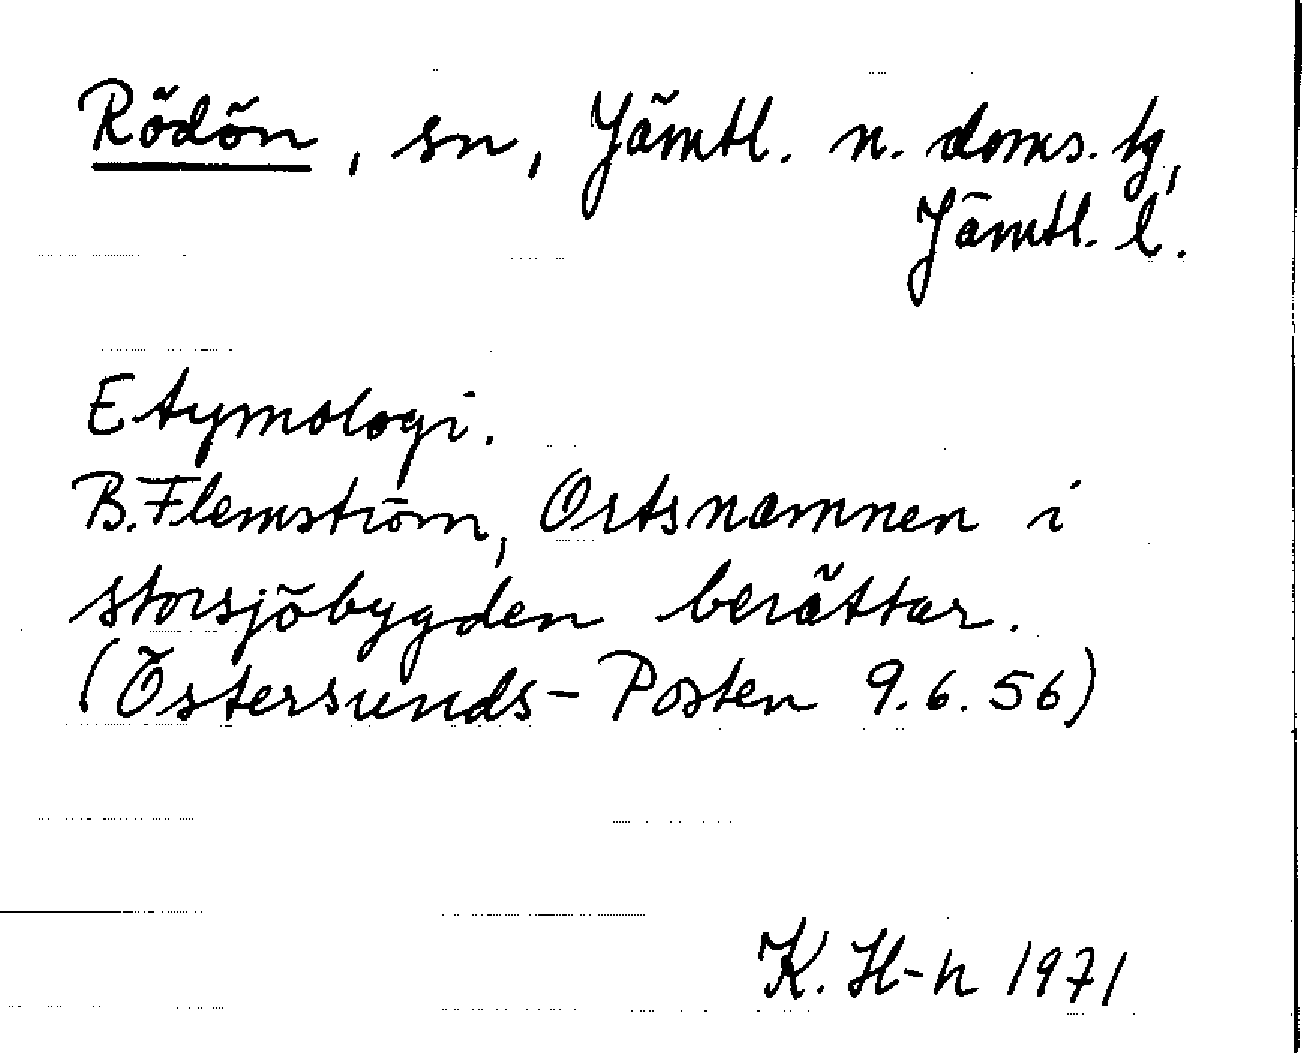 Rödön, sn, Jämtl. n. doms. tg,
Jämtl. l.
Etymologi.
B. Flemström, Ortsnamnen i
storsjöbygden berättar.
(Östersunds-Posten 9.6.56)
K. H-n 1971